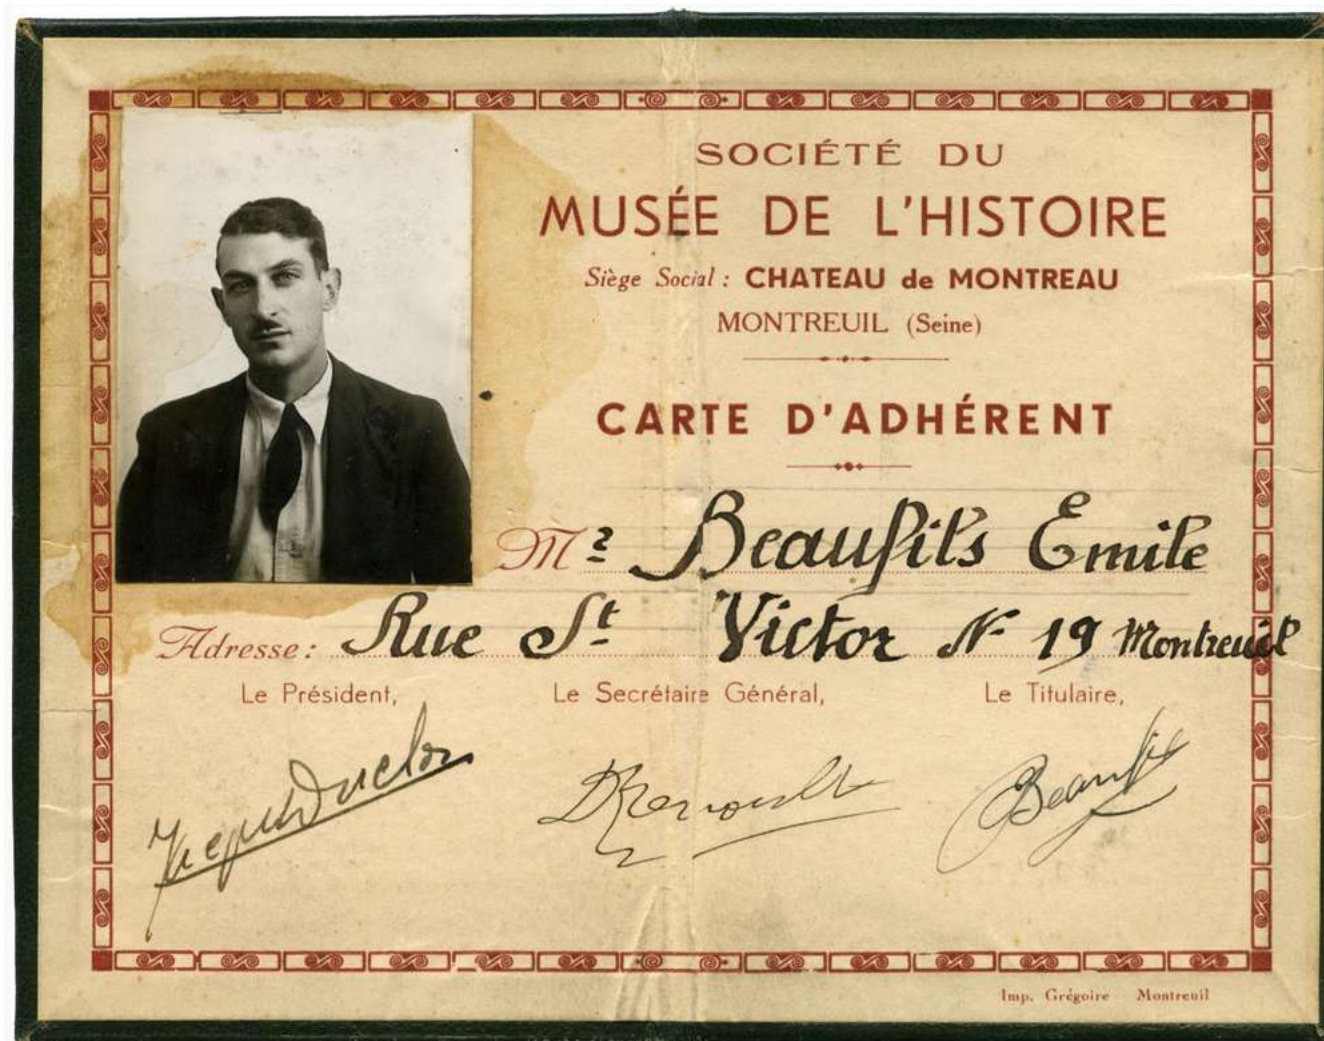 SOCIÉTÉ DU
MUSÉE DE L'HISTOIRE
Siège Social : CHATEAU de MONTREAU
MONTREUIL (Seine)
CARTE D'ADHÉRENT
Mr Beaufils Emile
Adresse : Rue St Victor N° 19 Montreuil
Le Président, Le Secrétaire Général, Le Titulaire,
Jacques Duclos DRenoult Beaufils
Imp. Grégoire Montreuil